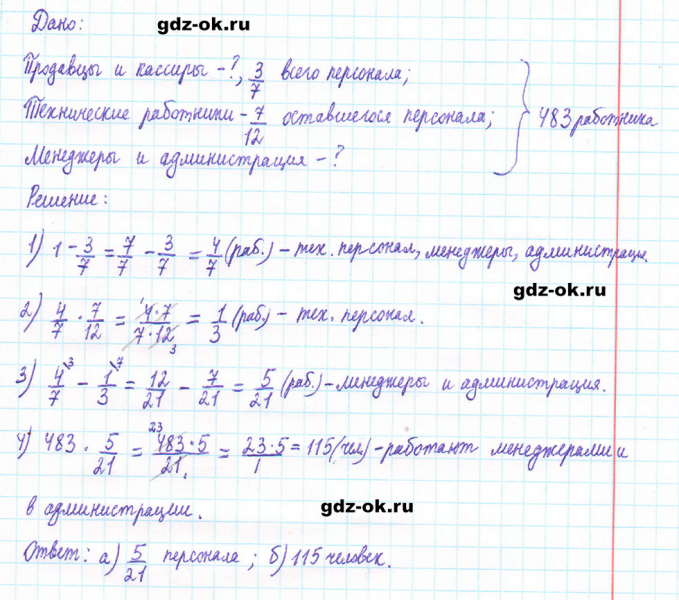 Дано:
gdz-ok.ru
Продавцы и кассиры - ?, 3/7 всего персонала;
Технические работники - 7/12 оставшегося персонала;
483 работника
Менеджеры и администрация - ?
Решение:
1) 1 - 3/7 = 7/7 - 3/7 = 4/7 (раб.) - тех. персонал, менеджеры, администрация.
gdz-ok.ru
2) 4/7 · 7/12 = 4·7/7·12 = 1/3 (раб.) - тех. персонал.
3) 4/7 - 1/3 = 12/21 - 7/21 = 5/21 (раб.) - менеджеры и администрация.
4) 483 · 5/21 = 483·5/21 = 23·5/1 = 115 (чел.) - работают менеджерами и
в администрации.
gdz-ok.ru
Ответ: а) 5/21 персонала; б) 115 человек.